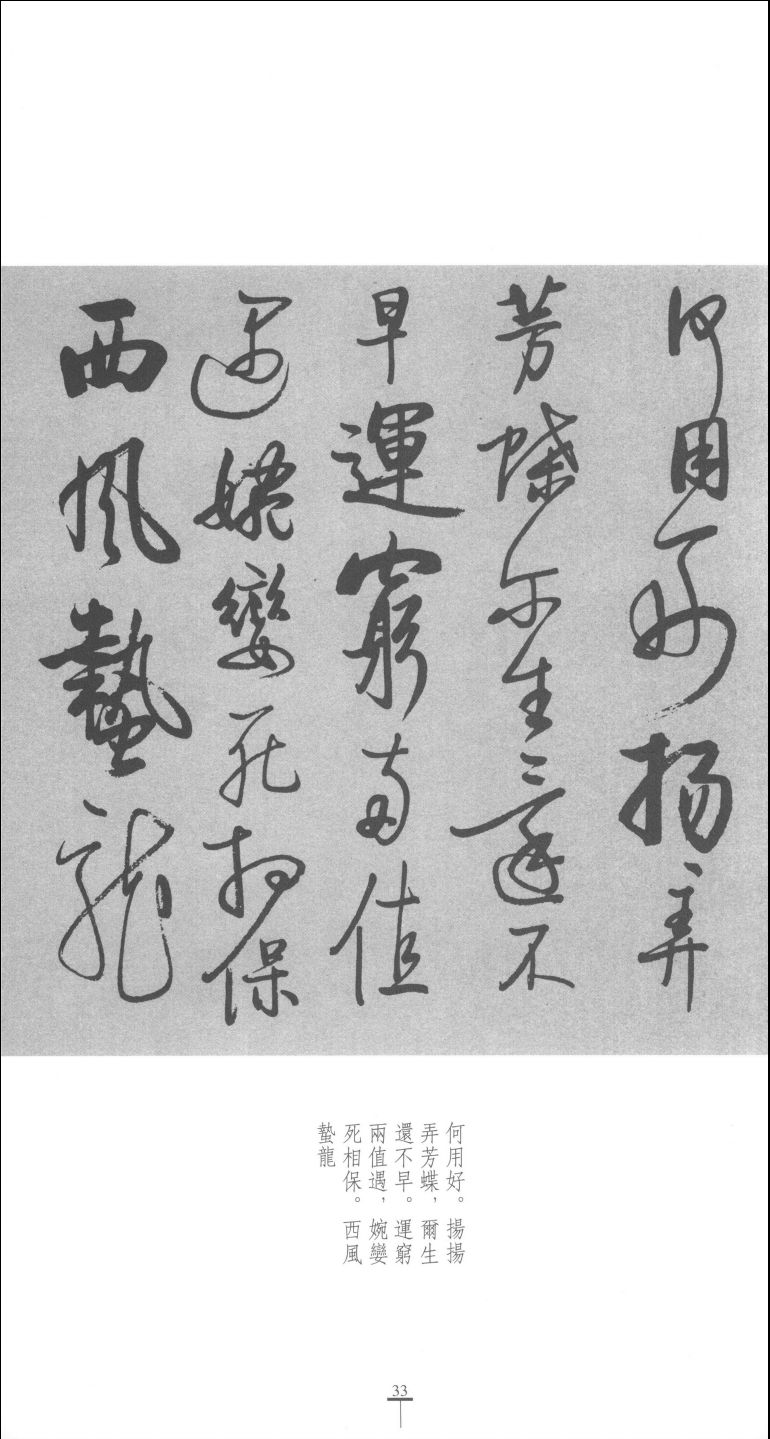 何用好揚弄
芳蝶尔生還不
早運窮兩值
遇婉孌死相保
西風蟄龍
何用好。揚揚
弄芳蝶，爾生
還不早。運窮
兩值遇，婉孌
死相保。西風
蟄龍
33